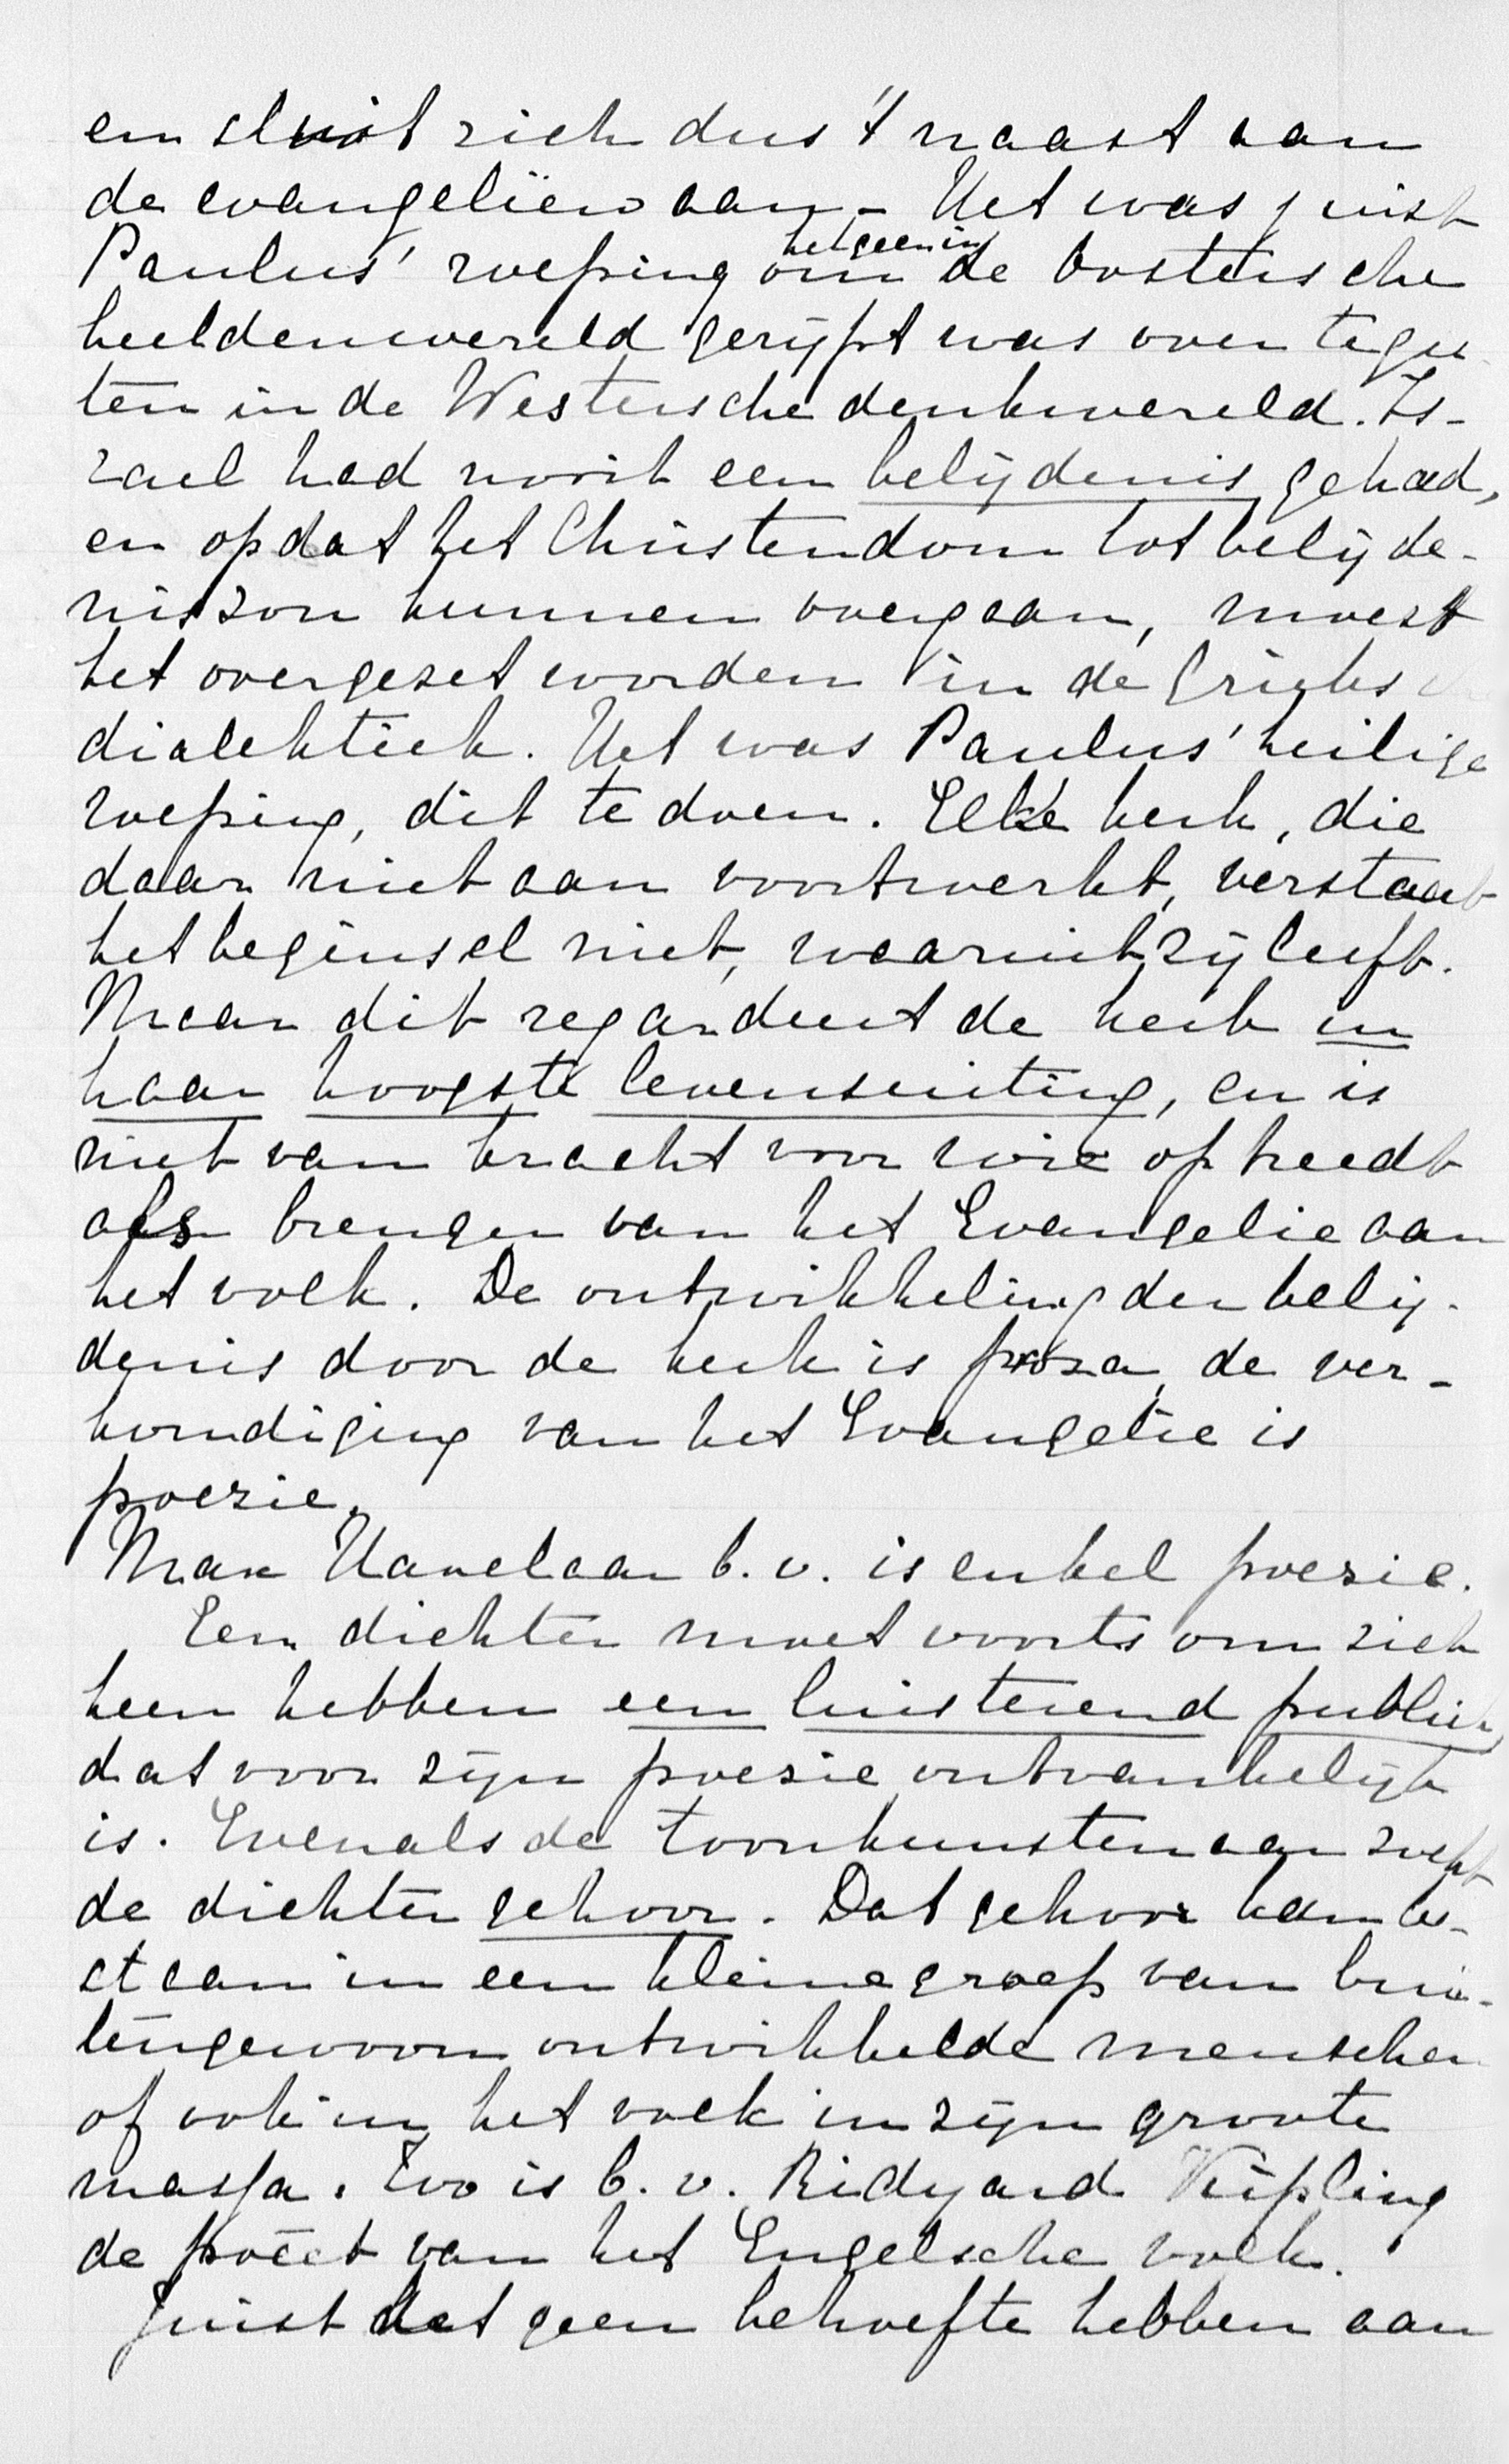 en sluit zich dus 't naast aan
de evangeliën aan. – Het was juist
Paulus' roeping om hetgeen in de Oostersche
beeldenwereld gerijpt was over te gie-
ten in de Westersche denkwereld. Is-
rael had nooit een belijdenis gehad,
en opdat het Christendom tot belijde-
nis zou kunnen overgaan, moest
het overgezet worden in de Grieks
dialektiek. Het was Paulus' heilige
roeping, dit te doen. Elke kerk, die
daar niet aan voortwerkt, verstaat
het beginsel niet, waaruit zij leeft.
Maar dit regardeert de kerk in
haar hoogste levensuiting, en is
niet van kracht voor wie optreedt
als brenger van het Evangelie aan
het volk. De ontwikkeling der belij-
denis door de kerk is proza, de ver-
kondiging van het Evangelie is
poezie.
Max Havelaar b.v. is enkel poezie.
Een dichter moet voorts om zich
heen hebben een luisterend publiek,
dat voor zijn poezie ontvankelijk
is. Evenals de toonkunstenaar zoekt
de dichter gehoor. Dat gehoor kan be-
staan in een kleine groep van bui-
tengewoon ontwikkelde menschen
of ook in het volk in zijn groote
massa. Zoo is b.v. Ridyard Kipling
de poëet van het Engelsche volk.
Juist het geen behoefte hebben aan